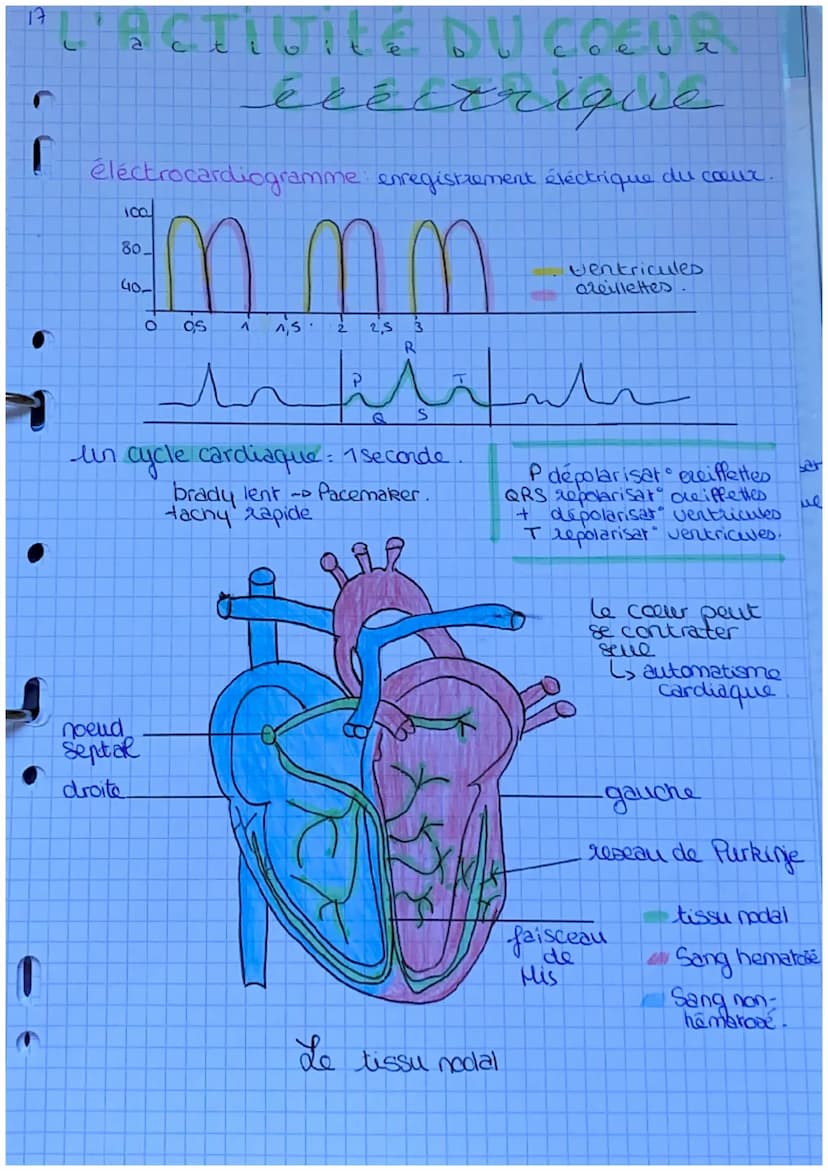 17
L'ACTIVITÉ DU COEUR
L'activité du coeur
ÉLECTRIQUE
éléctrique
éléctrocardiogramme: enregistrement éléctrique du coeur.
100
80
40
ventricules
oreillettes.
0 0,5 1 1,5 2 2,5 3
R
P T
Q S
un cycle cardiaque = 1 seconde.
brady lent -> Pacemaker.
tachy rapide
P dépolarisat° oreillettes
QRS repolarisat° oreillettes
+ dépolarisat° ventricules
T repolarisat° ventricules.
Le coeur peut
se contracter
seul
↳ automatisme
cardiaque
noeud
septal
droite
gauche
reseau de Purkinje
faisceau
de
His
tissu nodal
Sang hematosé
Sang non-
hématosé.
Le tissu nodal